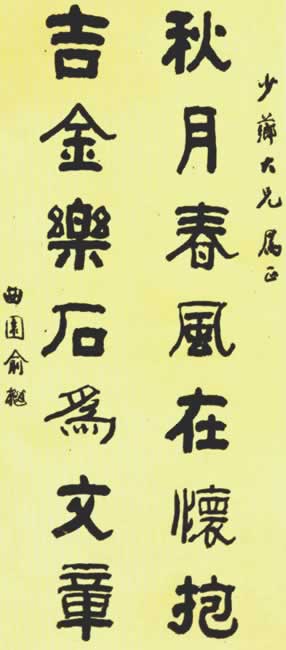 少薇大兄属正
秋月春風在懷抱
吉金樂石為文章
曲園俞樾